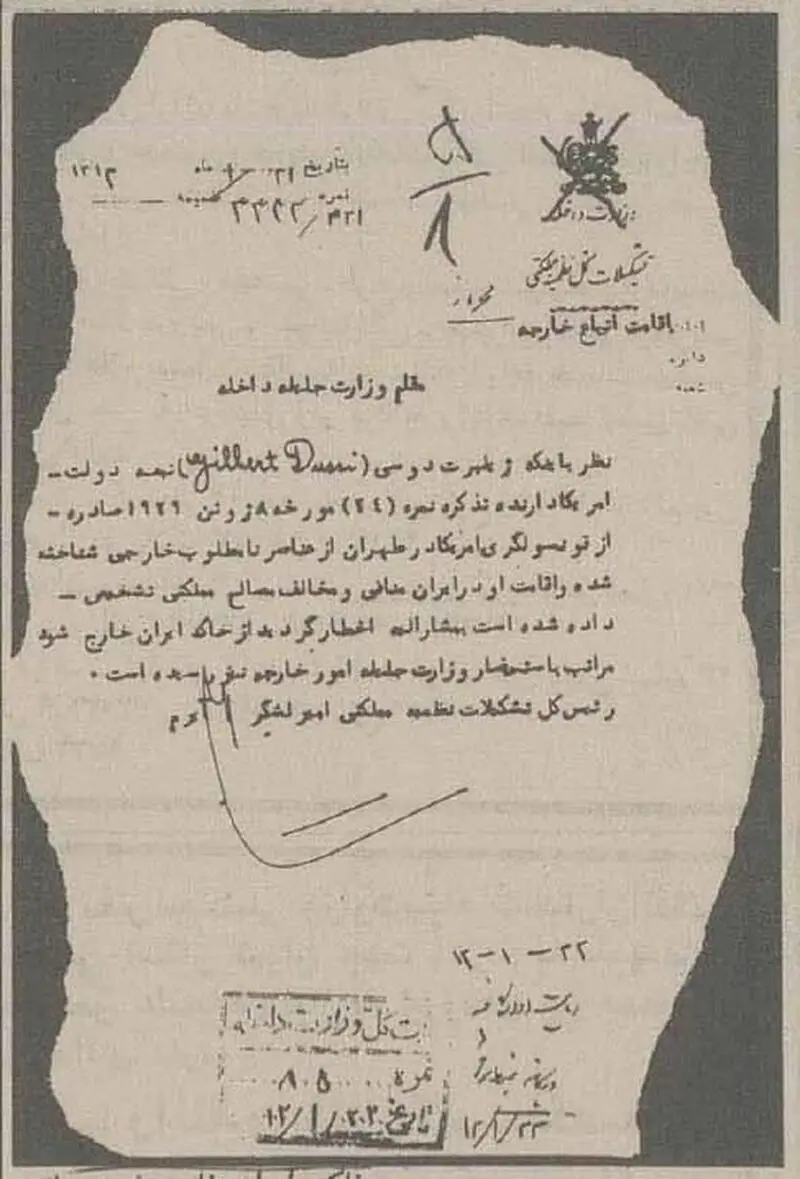 وزارت داخله
تشکیلات کل نظمیه مملکتی
محرمانه
اقامت اتباع خارجه
دایره
شعبه
بتاریخ ۲۱ ماه ۱ ۱۳۱۲
نمره ۳۳۴۲/۴۲۱ ضمیمه
مقام وزارت جلیله داخله
نظر باینکه ژیلبرت دوسی (Gilbert Dussi) تبعه دولت ـ
امریکا دارنده تذکره نمره (۲٤) مورخه ۸ ژوئن ۱۹۲۹ صادره ـ
از قونسولگری امریکا در طهران از عناصر نامطلوب خارجی شناخته
شده و اقامت او در ایران منافی و مخالف مصالح مملکتی تشخیص ـ
داده شده است بمشارالیه اخطار گردید از خاک ایران خارج شود
مراتب باستحضار وزارت جلیله امور خارجه نیز رسیده است .
رئیس کل تشکیلات نظمیه مملکتی امیر لشگر آیرم
۱۲-۱-۲۲
ریاست اداره
ثبت کل وزارت داخله
نمره ۸۰۵
تاریخ ۱۲/۱/۲۳
۱۲/۱/۲۳